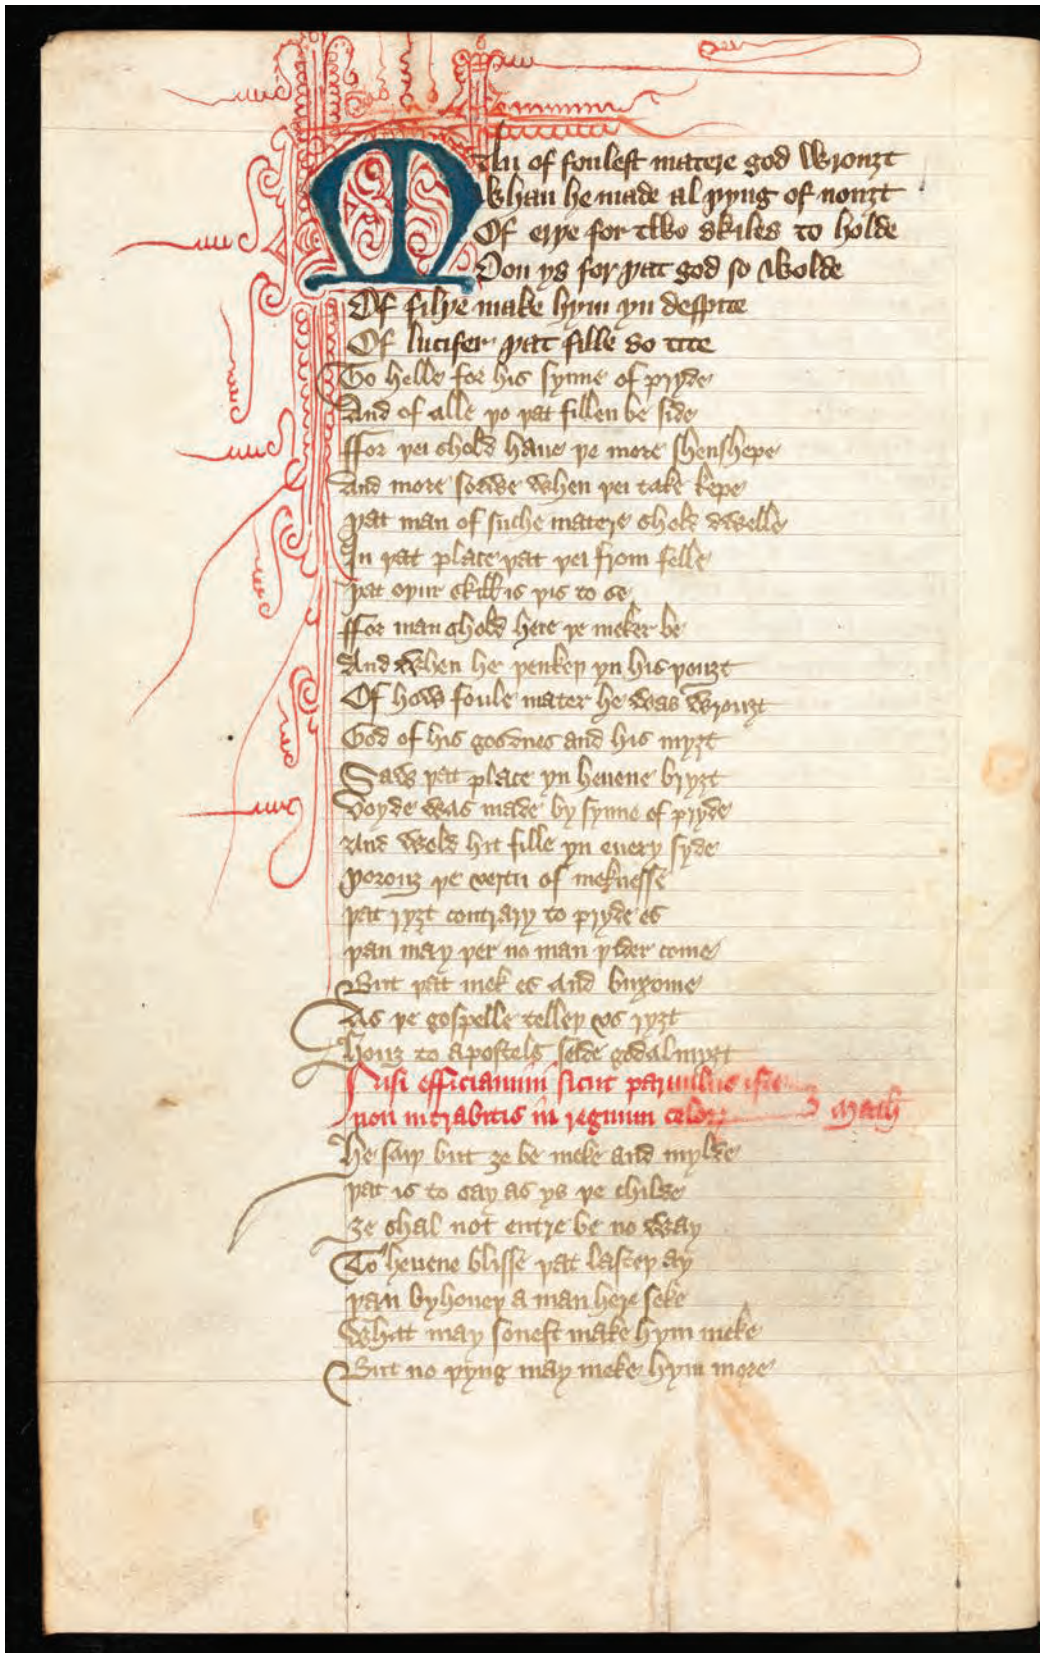 Man of foulest matere god wrouȝt
Whan he made al þyng of nouȝt
Of erþe for two skiles to holde
Oon ys for þat god so wolde
Of filþe make hym yn despite
Of lucifer þat fille so tite
To helle for his synne of pryde
And of alle þo þat fillen be side
ffor þei shold haue þe more shenshepe
And more sorwe when þei take kepe
þat man of suche matere shold dwelle
In þat place þat þei from felle
þat oþur skill is þis to se
ffor man shold here þe meker be
And when he þenkeþ yn his þouȝt
Of how foule mater he was wrouȝt
God of his goodnes and his myȝt
Saw þat place yn heuene bryȝt
Voyde was made by synne of pryde
And wold hit fille yn euery syde
þorouȝ þe vertu of meknesse
þat ryȝt contrary to pryde es
þan may þer no man þider come
But þat mek es and buxome
As þe gospelle telleþ vs ryȝt
Houȝ to apostels seide god almyȝt
Nisi efficiamini sicut paruulus iste
non intrabitis in regnum celor Math
He saiþ but ȝe be meke and mylde
þat is to say as ys þe childe
ȝe shal not entre be no way
To heuene blisse þat lasteþ ay
þan byhoueþ a man here seke
What may sonest make hym meke
But no þyng may meke hym more